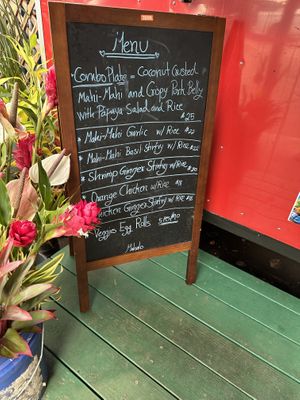 Menu
Combo Plate = Coconut Crusted
Mahi-Mahi and Crispy Pork Belly
with Papaya Salad and Rice
$25
* Mahi-Mahi Garlic w/ Rice $22
* Mahi-Mahi Basil Stirfry w/ Rice $22
* Shrimp Ginger Stirfry w/ Rice $20
* Orange Chicken w/ Rice $18
* Chicken Ginger Stirfry w/ Rice $18
* Veggie Egg Rolls
Mahalo